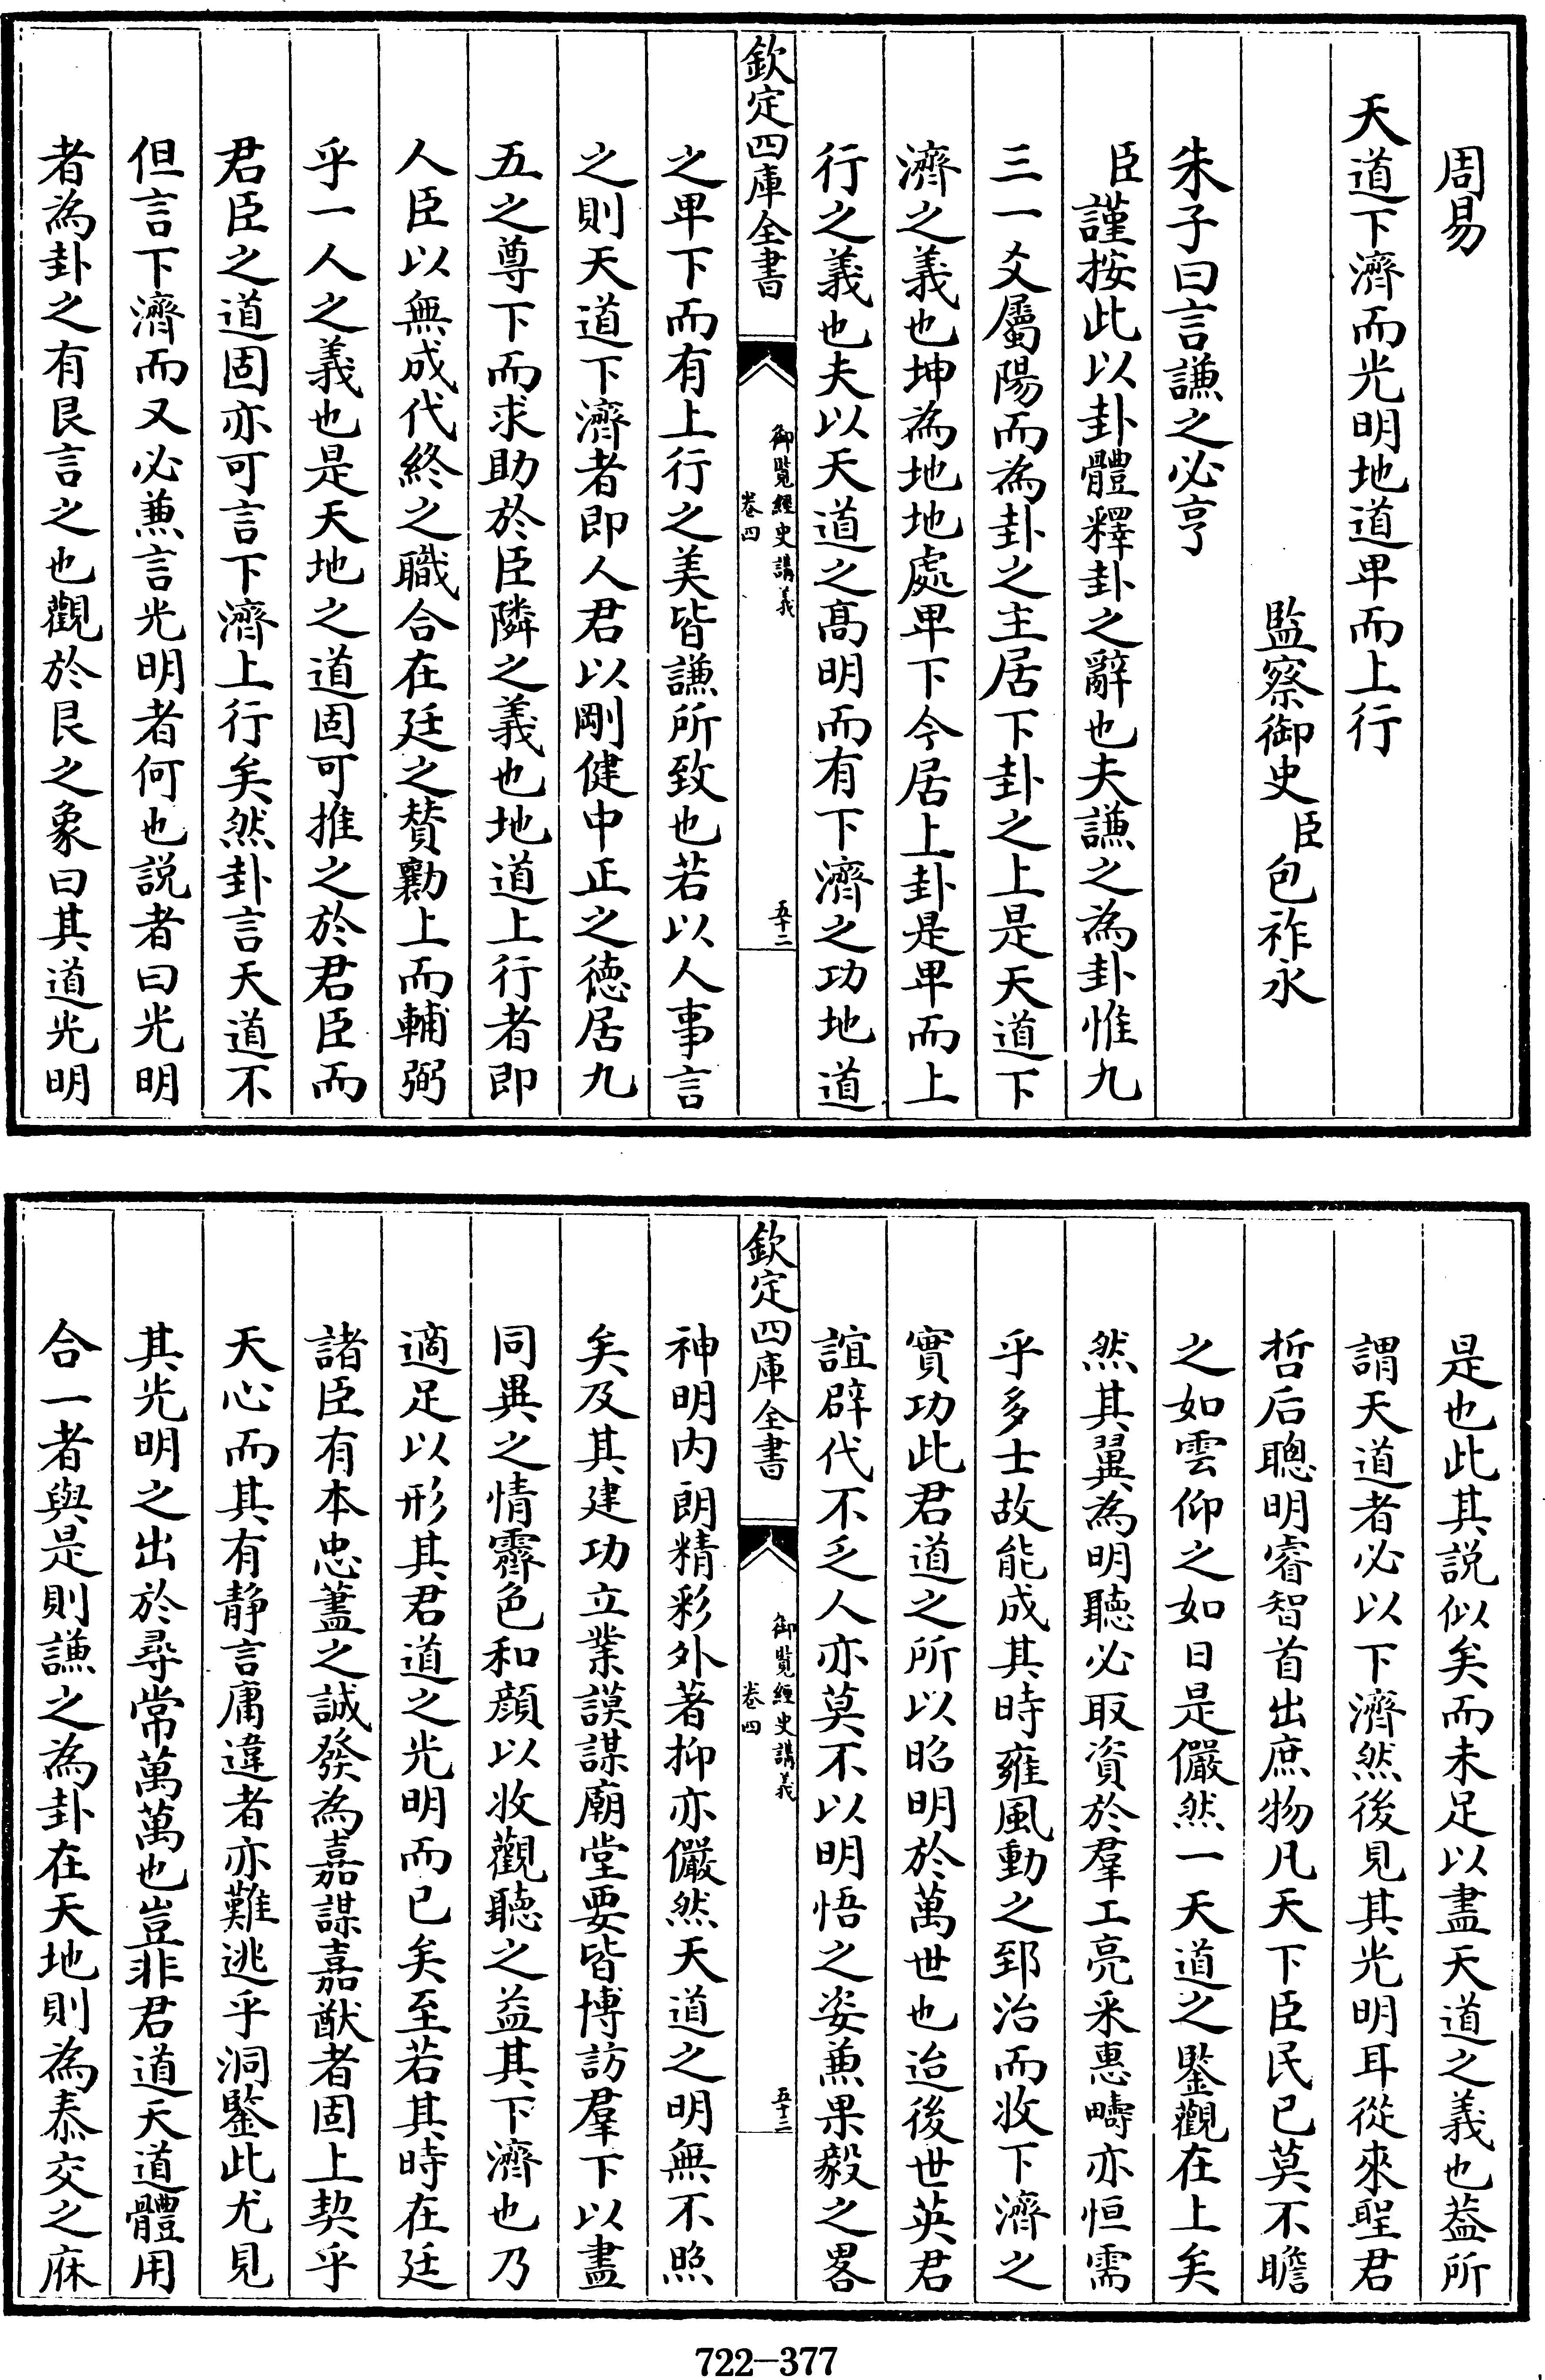 周易
天道下濟而光明地道卑而上行
監察御史臣包祚永
朱子曰言謙之必亨
臣謹按此以卦體釋卦之辭也夫謙之為卦惟九
三一爻屬陽而為卦之主居下卦之上是天道下
濟之義也坤為地地處卑下今居上卦是卑而上
行之義也夫以天道之高明而有下濟之功地道
欽定四庫全書
御覽經史講義
卷四
五十二
之卑下而有上行之美皆謙所致也若以人事言
之則天道下濟者即人君以剛健中正之德居九
五之尊下而求助於臣隣之義也地道上行者即
人臣以無成代終之職合在廷之贊勷上而輔弼
乎一人之義也是天地之道固可推之於君臣而
君臣之道固亦可言下濟上行矣然卦言天道不
但言下濟而又必兼言光明者何也説者曰光明
者為卦之有艮言之也觀於艮之象曰其道光明
是也此其説似矣而未足以盡天道之義也葢所
謂天道者必以下濟然後見其光明耳從來聖君
哲后聰明睿智首出庶物凡天下臣民已莫不瞻
之如雲仰之如日是儼然一天道之鑒觀在上矣
然其翼為明聽必取資於羣工亮采惠疇亦恒需
乎多士故能成其時雍風動之郅治而收下濟之
實功此君道之所以昭明於萬世也迨後世英君
誼辟代不乏人亦莫不以明悟之姿兼果毅之畧
欽定四庫全書
御覽經史講義
卷四
五十二
神明内朗精彩外著抑亦儼然天道之明無不照
矣及其建功立業謨謀廟堂要皆博訪羣下以盡
同異之情霽色和顔以收觀聽之益其下濟也乃
適足以形其君道之光明而已矣至若其時在廷
諸臣有本忠藎之誠發為嘉謀嘉猷者固上契乎
天心而其有静言庸違者亦難逃乎洞鑒此尤見
其光明之出於尋常萬萬也豈非君道天道體用
合一者與是則謙之為卦在天地則為泰交之庥
722—377